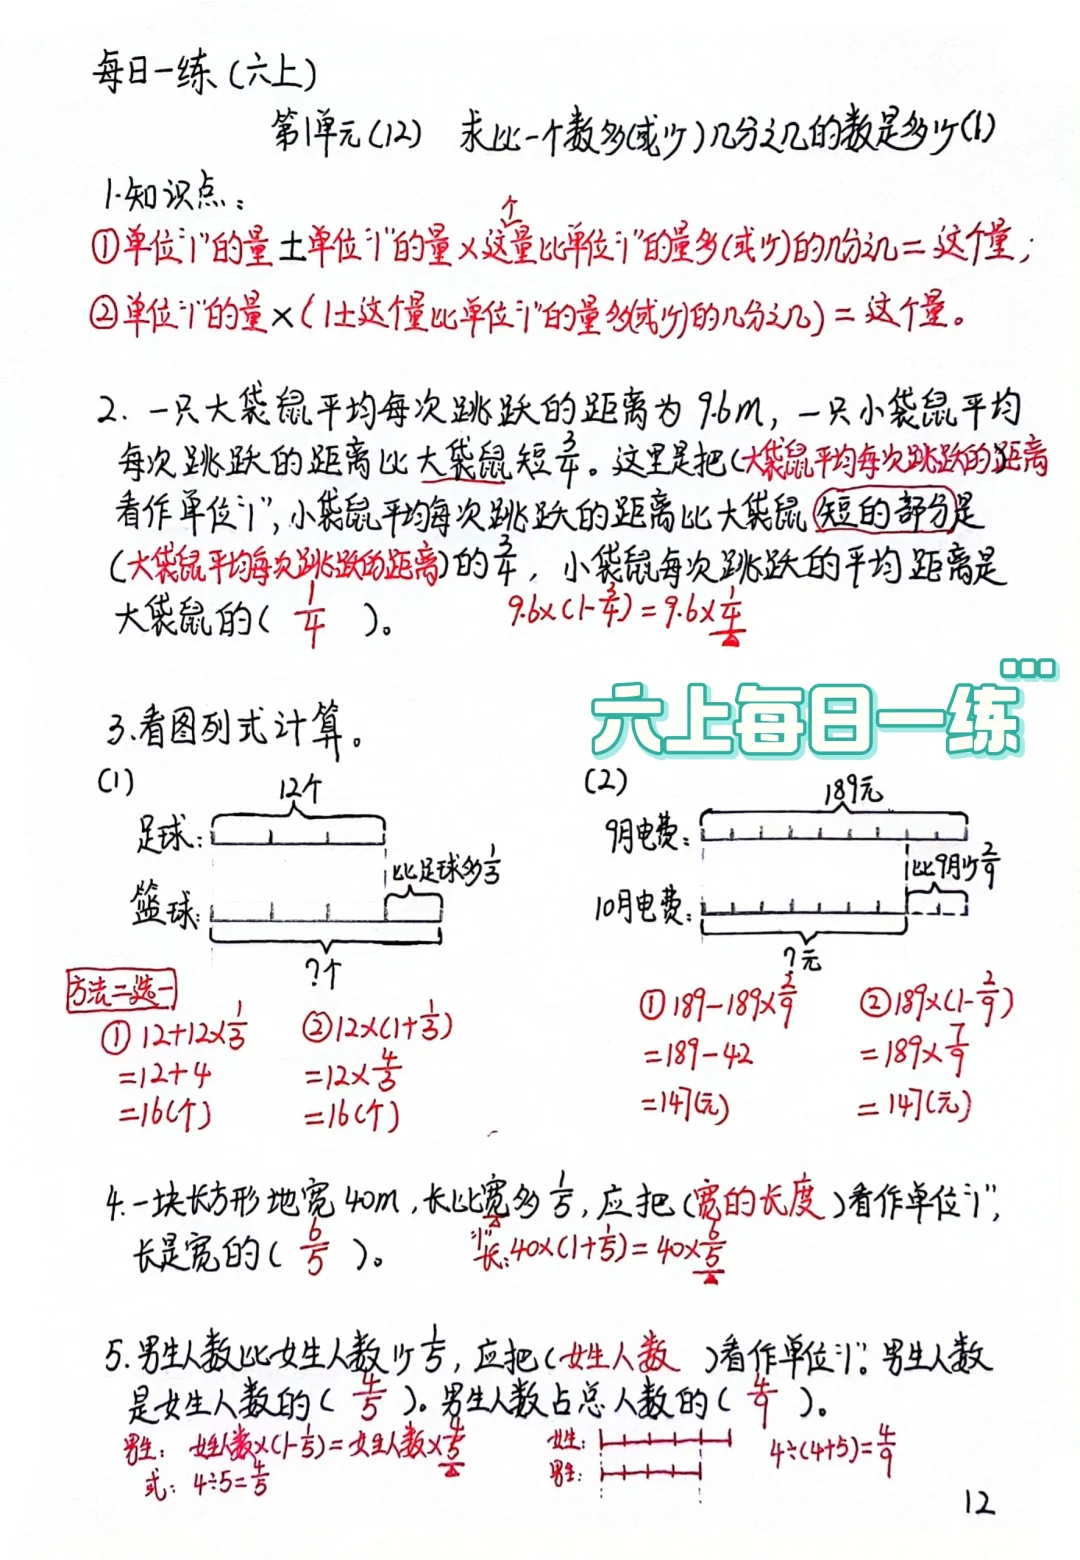 每日一练(六上)
第1单元(12) 求比一个数多(或少)几分之几的数是多少(1)
1.知识点:
个
①单位“1”的量±单位“1”的量×这量比单位“1”的量多(或少)的几分之几=这个量;
②单位“1”的量×(1±这个量比单位“1”的量多(或少)的几分之几)=这个量。
2. 一只大袋鼠平均每次跳跃的距离为9.6m,一只小袋鼠平均
每次跳跃的距离比大袋鼠短3/4。这里是把(大袋鼠平均每次跳跃的距离
看作单位“1”,小袋鼠平均每次跳跃的距离比大袋鼠短的部分是
(大袋鼠平均每次跳跃的距离)的3/4,小袋鼠每次跳跃的平均距离是
大袋鼠的( 1/4 )。 9.6×(1-3/4)=9.6×1/4
六上每日一练
3.看图列式计算。
(1) (2)
12个 189元
足球: 9月电费:
比足球多1/3 比9月少2/9
篮球: 10月电费:
?个 ?元
方法二选一
①12+12×1/3 ②12×(1+1/3) ①189-189×2/9 ②189×(1-2/9)
=12+4 =12×4/3 =189-42 =189×7/9
=16(个) =16(个) =147(元) =147(元)
4.一块长方形地宽40m,长比宽多1/5,应把(宽的长度)看作单位“1”,
“1”
长是宽的( 6/5 )。 长:40×(1+1/5)=40×6/5
5.男生人数比女生人数少1/5,应把(女生人数 )看作单位“1”。男生人数
是女生人数的( 4/5 )。男生人数占总人数的( 4/9 )。
男生: 女生人数×(1-1/5)=女生人数×4/5 女生: 4÷(4+5)=4/9
或: 4÷5=4/5 男生:
12